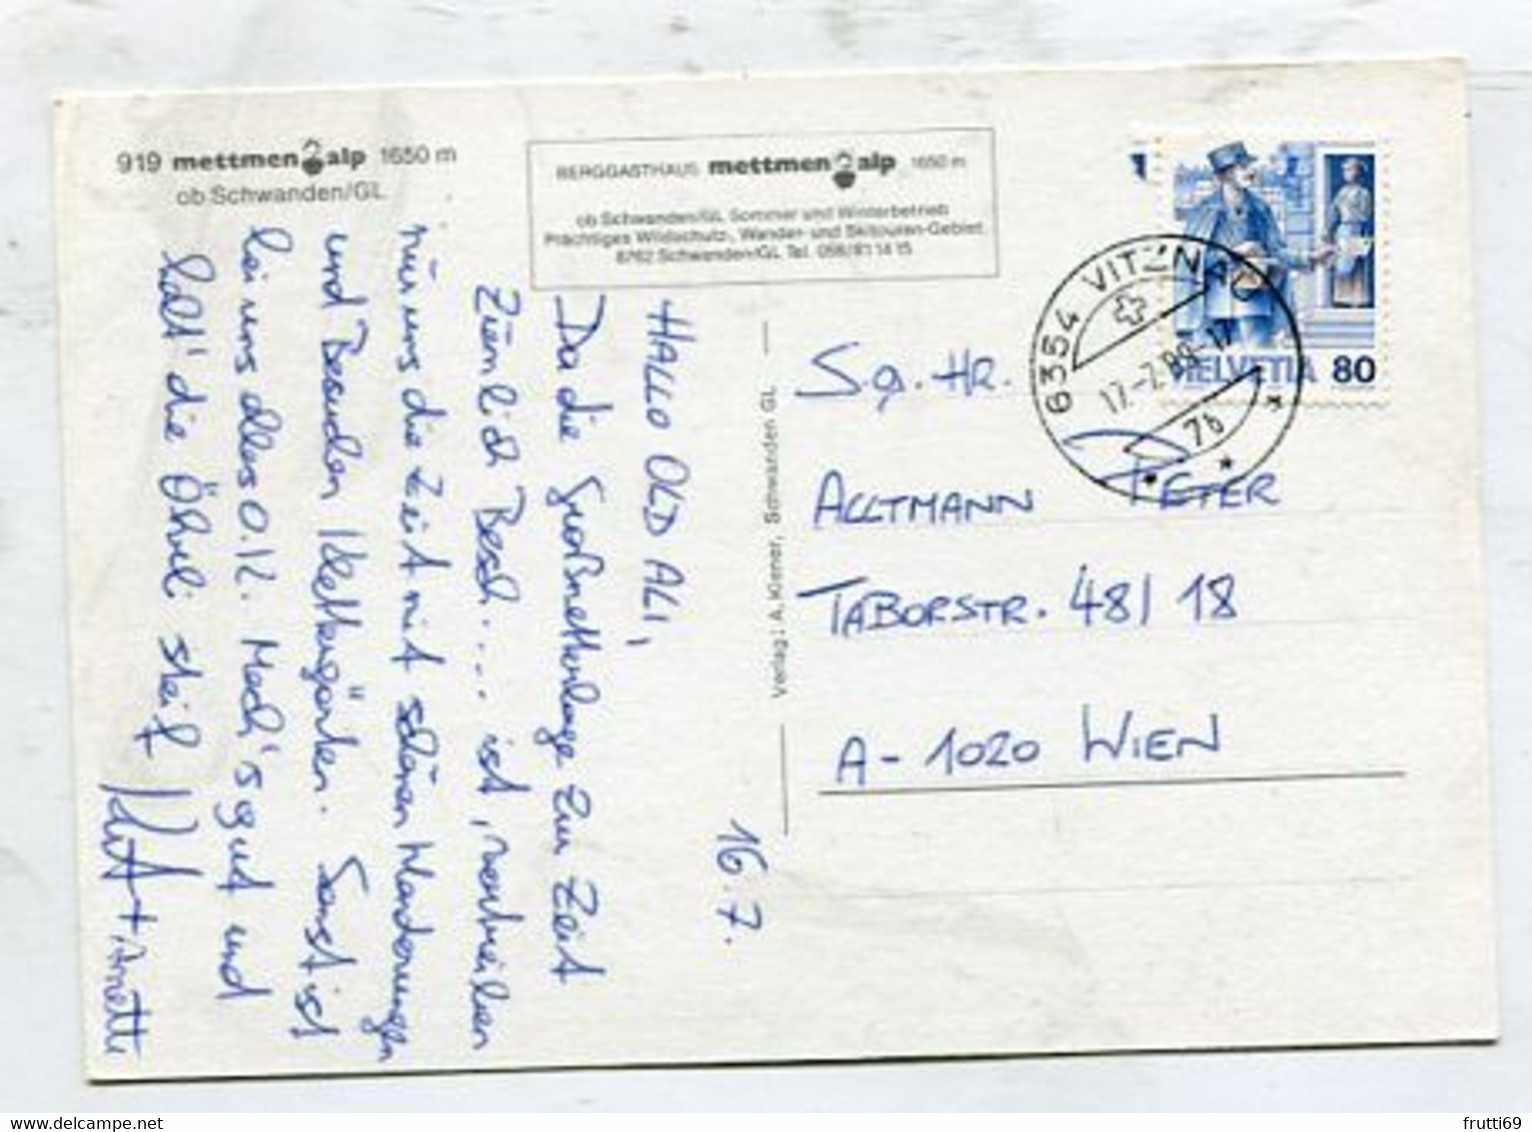 919 mettmen alp 1650 m
ob Schwanden/GL
BERGGASTHAUS mettmen alp 1650 m
ob Schwanden/GL Sommer und Winterbetrieb
Prächtiges Wildschutz-, Wander- und Skitouren-Gebiet
8762 Schwanden/GL Tel. 058/81 14 15
16.7.
HALLO OLD ALI,
Da die Großwetterlage zur Zeit
ziemlich Besch.... ist, vertreiben
wir uns die Zeit mit schönen Wanderungen
und Besuchen Klettergärten. Sonst ist
bei uns alles O.K. Mach's gut und
halt' die Öhrli steif
Kurt + Annette
Verlag: A. Kiener, Schwanden GL
6354 VITZNAU
17.-7.89-17
76
HELVETIA 80
S.g. HR.
ALLTMANN PETER
TABORSTR. 48/18
A-1020 WIEN
frutti69